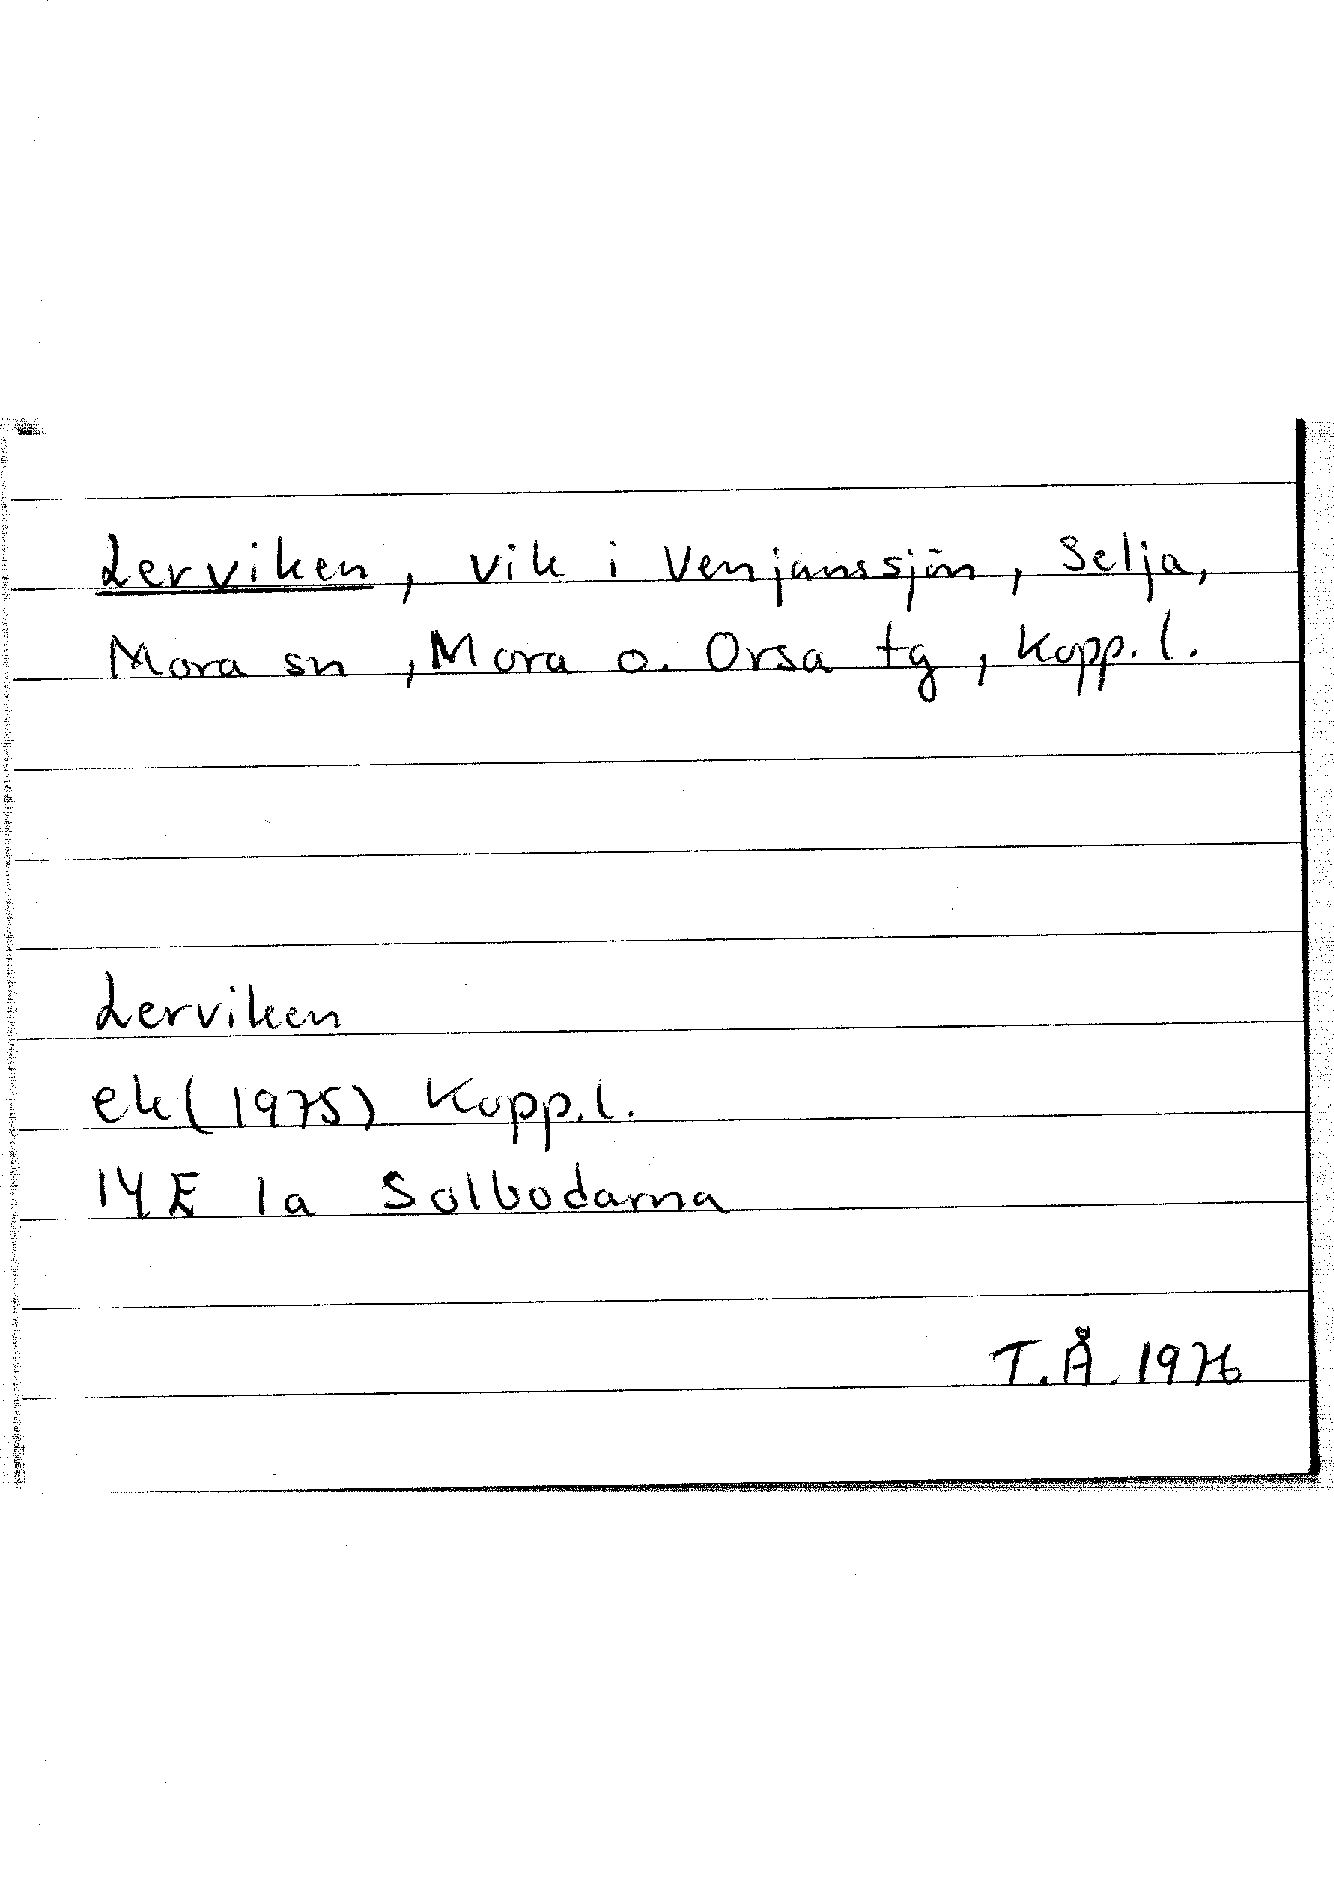 Lerviken, vik i Venjanssjön, Selja,
Mora sn, Mora o. Orsa tg, Kopp. l.
Lerviken
ek (1975) Kopp. l.
14 E 1a Solbodarna
T.Å. 1976